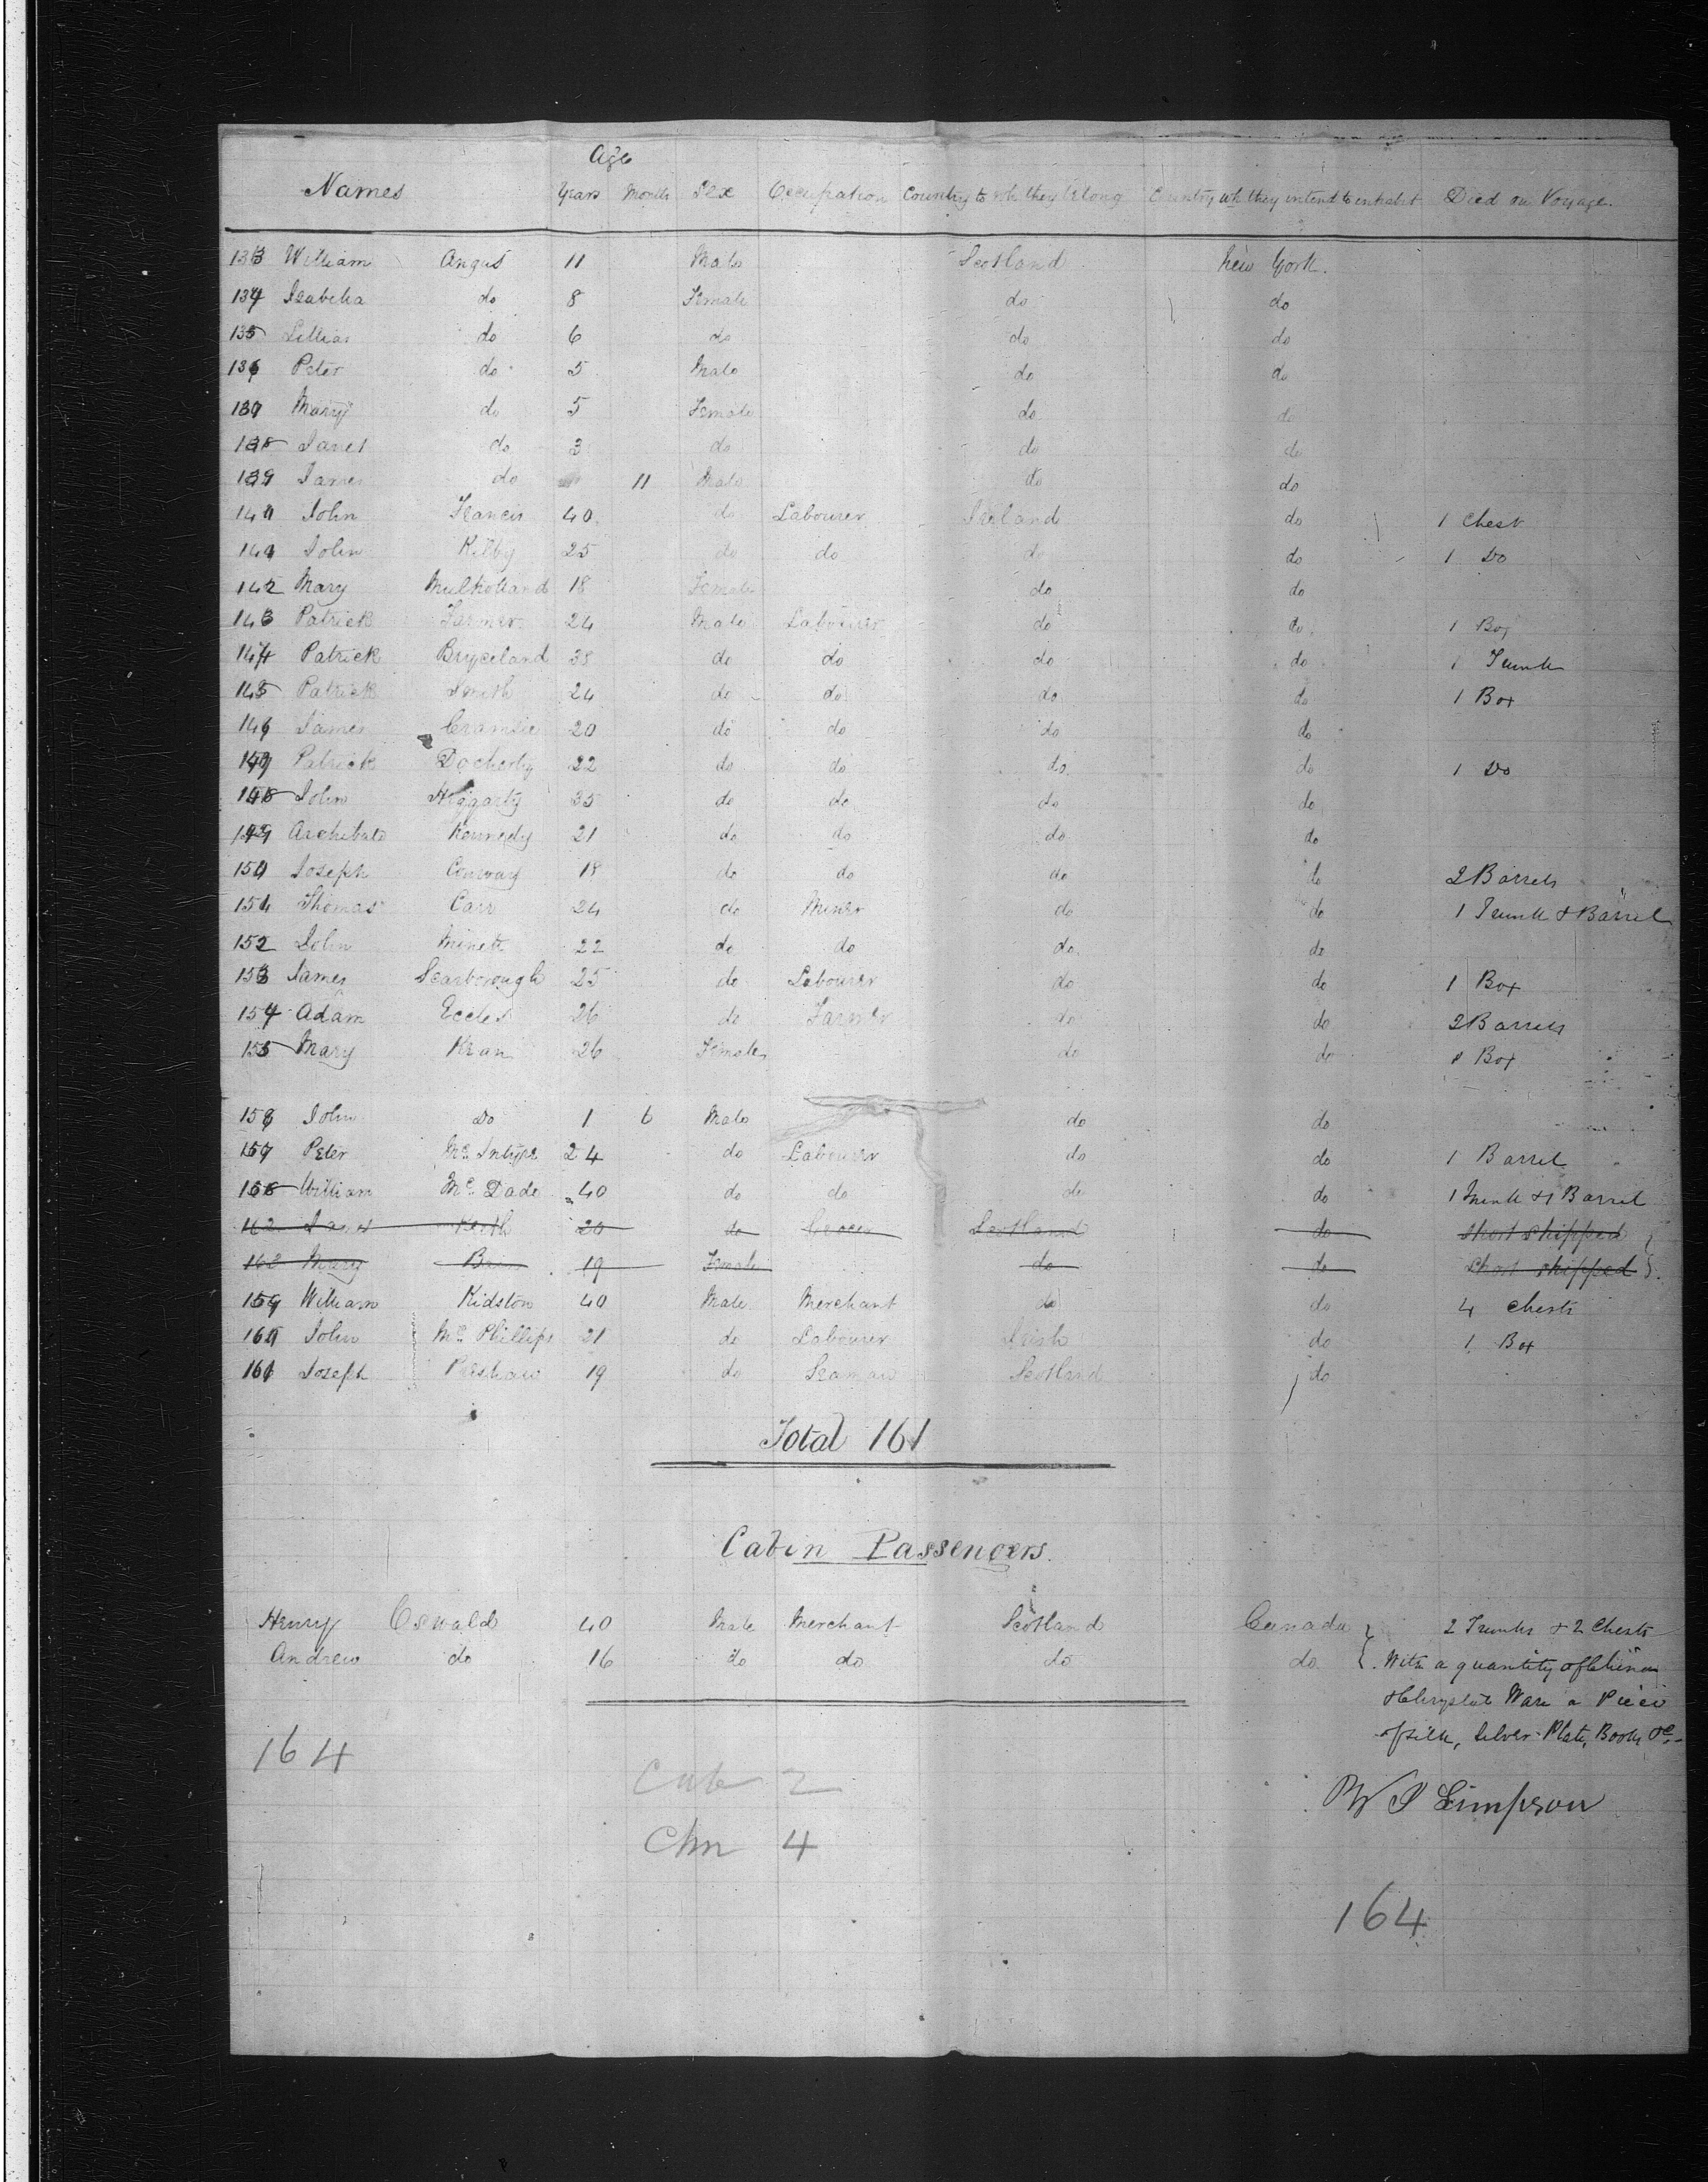 Age
Names Years Month Sex Occupation Country to wh they belong Country wh they intend to inhabit Died on Voyage.
133 William Angus 11 Male Scotland New York.
134 Isabella do 8 Female do do
135 Lillias do 6 do do do
136 Peter do 5 Male do do
137 Mary do 5 Female do do
138 Janet do 3 do do do
139 James do 11 Male do do
140 John Francis 40 do Labourer Ireland do 1 Chest
141 John Kilby 25 do do do do 1 Do
142 Mary Mulholland 18 Female do do
143 Patrick Farmer 24 Male Labourer do do 1 Box
144 Patrick Bryceland 38 do do do do 1 Trunk
145 Patrick Smith 24 do do do do 1 Box
146 James Cramsie 20 do do do do
147 Patrick Docherty 22 do do do do 1 Do
148 John Heggarty 35 do do do do
149 Archibald Kennedy 21 do do do do
150 Joseph Conway 18 do do do do 2 Barrels
151 Thomas Carr 24 do Miner do do 1 Trunk & Barrel
152 John 22 do do do do
153 James Scarborough 25 do Labourer do do 1 Box
154 Adam Eccles 26 do Farmer do do 2 Barrels
155 Mary Kran 26 Female do do 1 Box
156 John Do 1 6 Male do do
157 Peter Mc Intyre 24 do Labourer do do 1 Barrel
158 William Mc Dade 40 do do do do 1 Trunk & 1 Barrel
162 Keith 20 do Grocer Scotland do Short Shipped
162 Mary 19 Female do do Short Shipped
159 William Kidston 40 Male Merchant do do 4 Chests
160 John Mc Phillips 21 do Labourer Irish do 1 Box
161 Joseph 19 do Seaman Scotland do
Total 161
Cabin Passengers.
Henry Oswald 40 Male Merchant Scotland Canada 2 Trunks & 2 Chests
Andrew do 16 do do do do With a quantity of China
& Chrystal Ware a Piece
of silk, Silver Plate, Books &c
164
2
W S Simpson
Chn 4
164